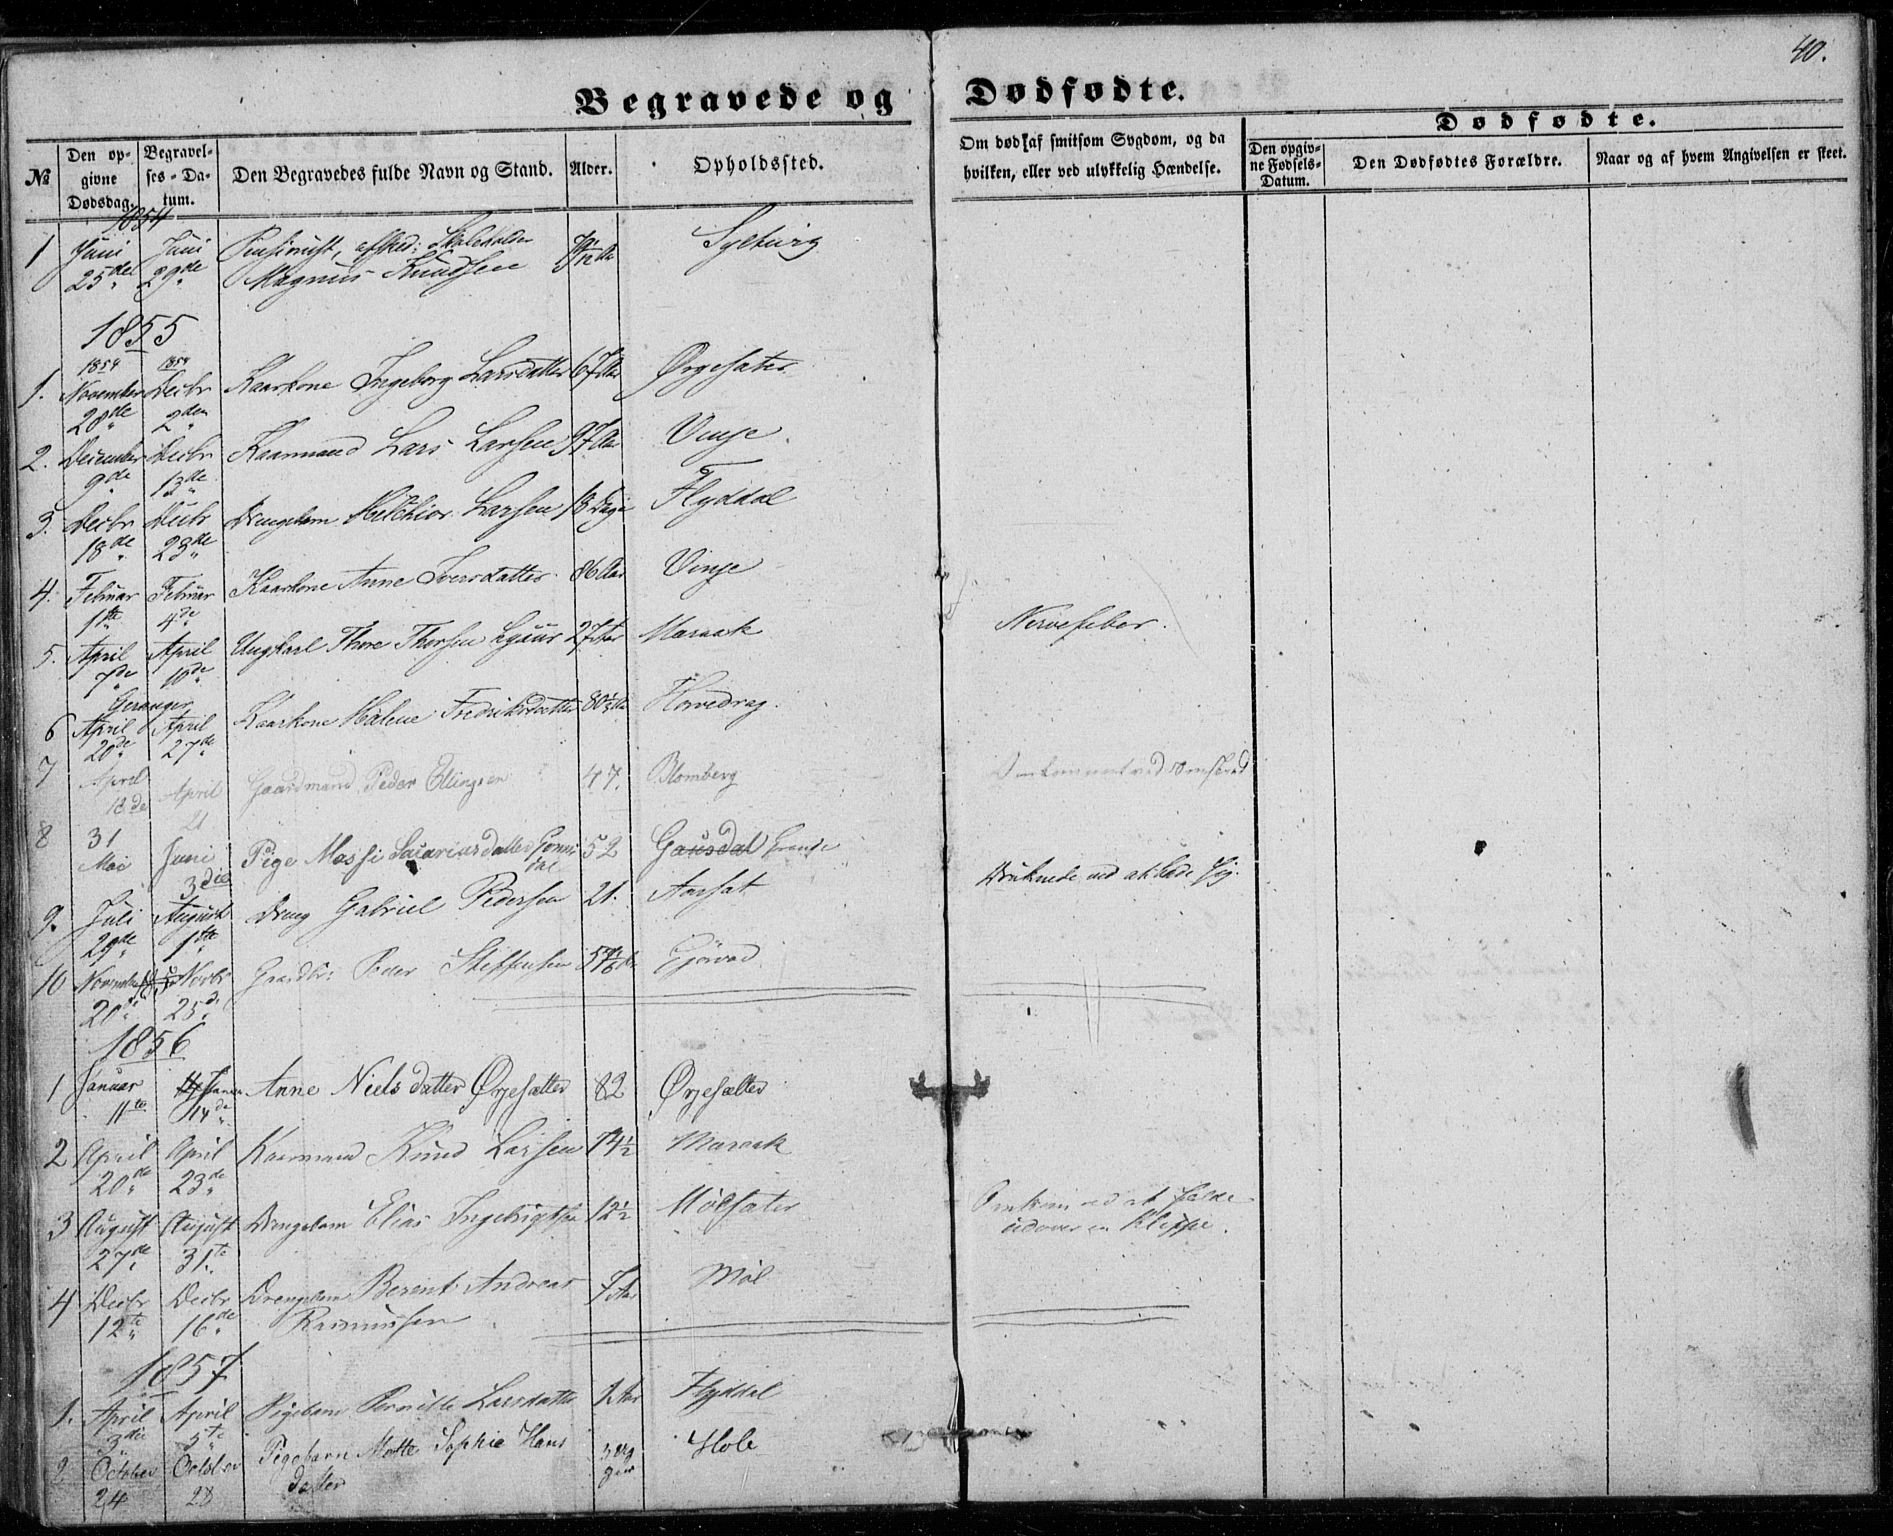 40.
Begravede og Dødfødte.
Dødfødte.
№
Den opgivne Dødsdag.
Begravelses-Datum.
Den Begravedes fulde Navn og Stand.
Alder.
Opholdssted.
Om død af smitsom Sygdom, og da hvilken, eller ved ulykkelig Hændelse.
Den opgivne Fødsels-Datum.
Den Dødfødtes Forældre.
Naar og af hvem Angivelsen er skeet.
1854
1 Juni 25de Juni 29de Magnus Knudsen Syltevig
1855
1854 1854
1. November 28de Decbr 2den Kaarkone Ingeborg Larsdatter 67 Aar Ørgesater
2. December 9de Decbr 13de Kaarmand Lars Larsen 97 Aar Vinje
3. Decbr 18de Decbr 23de Drengebarn Melchior Larsen 18 Dage Flyddal
4. Februar 1ste Februar 4de Kaarkone Anne Iversdatter 86 Aar Vinje
5. April 7de April 10de Ungkarl Thore Thorsen 27 Aar Maraak Nervefeber.
Geranger
6 April 20de April 27de Kaarkone Halene Fredriksdatter 80½ Aar Horvedrag.
7 April 18de April 21 Gaardmand Peder Ellingsen 47. Blomberg
8 31 Mai Juni 3die Pige Massi Sacariasdatter 52 Gausdal Grande
9. Juli 29de August 1ste Dreng Gabriel Pedersen 21. Aarsat Druknede ved at bade sig.
10 November 20de Novbr 25de Gaardbr: Peder Steffensen Gjørvad
1856
1 Januar 11te 14 Januar 14de Anne Nielsdatter Ørjesætter 82 Ørjesætter
2 April 20de April 23de Kaarmand Knud Larsen 74½ Maraak
3 August 27de August 31te Drengebarn Elias Ingebrigtsen 12½ Mølsater Omkom ved at falde
udover en Klippe.
4 Decbr 12te Decbr 16de Drengebarn Berent Andreas 7 Aar Møl
Rasmussen
1857
1. April 3die April 5te Pigebarn Pernille Larsdatter Aar Flyddal
2 October 24 October 28 Pigebarn Mette Sophie Hans 3 Uger Hole
datter